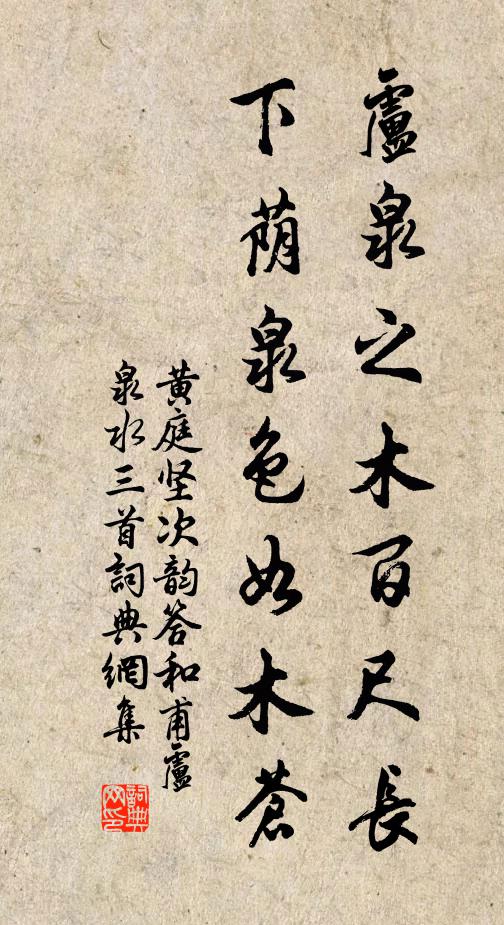 盧泉之木百尺長
下荫泉色如木蒼
黄庭坚次韵答和甫盧
泉水三首詞典網集
詞典
网印